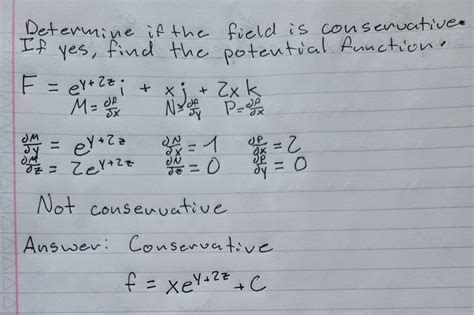 Determine if the field is conservative.
If yes, find the potential function.
F = e^{y+2z} i + xj + 2x k
M = ∂f/∂x N = ∂f/∂y P = ∂f/∂x
∂M/∂y = e^{y+2z} ∂N/∂x = 1 ∂P/∂x = 2
∂M/∂z = 2e^{y+2z} ∂N/∂z = 0 ∂P/∂y = 0
Not conservative
Answer: Conservative
f = xe^{y+2z} + C